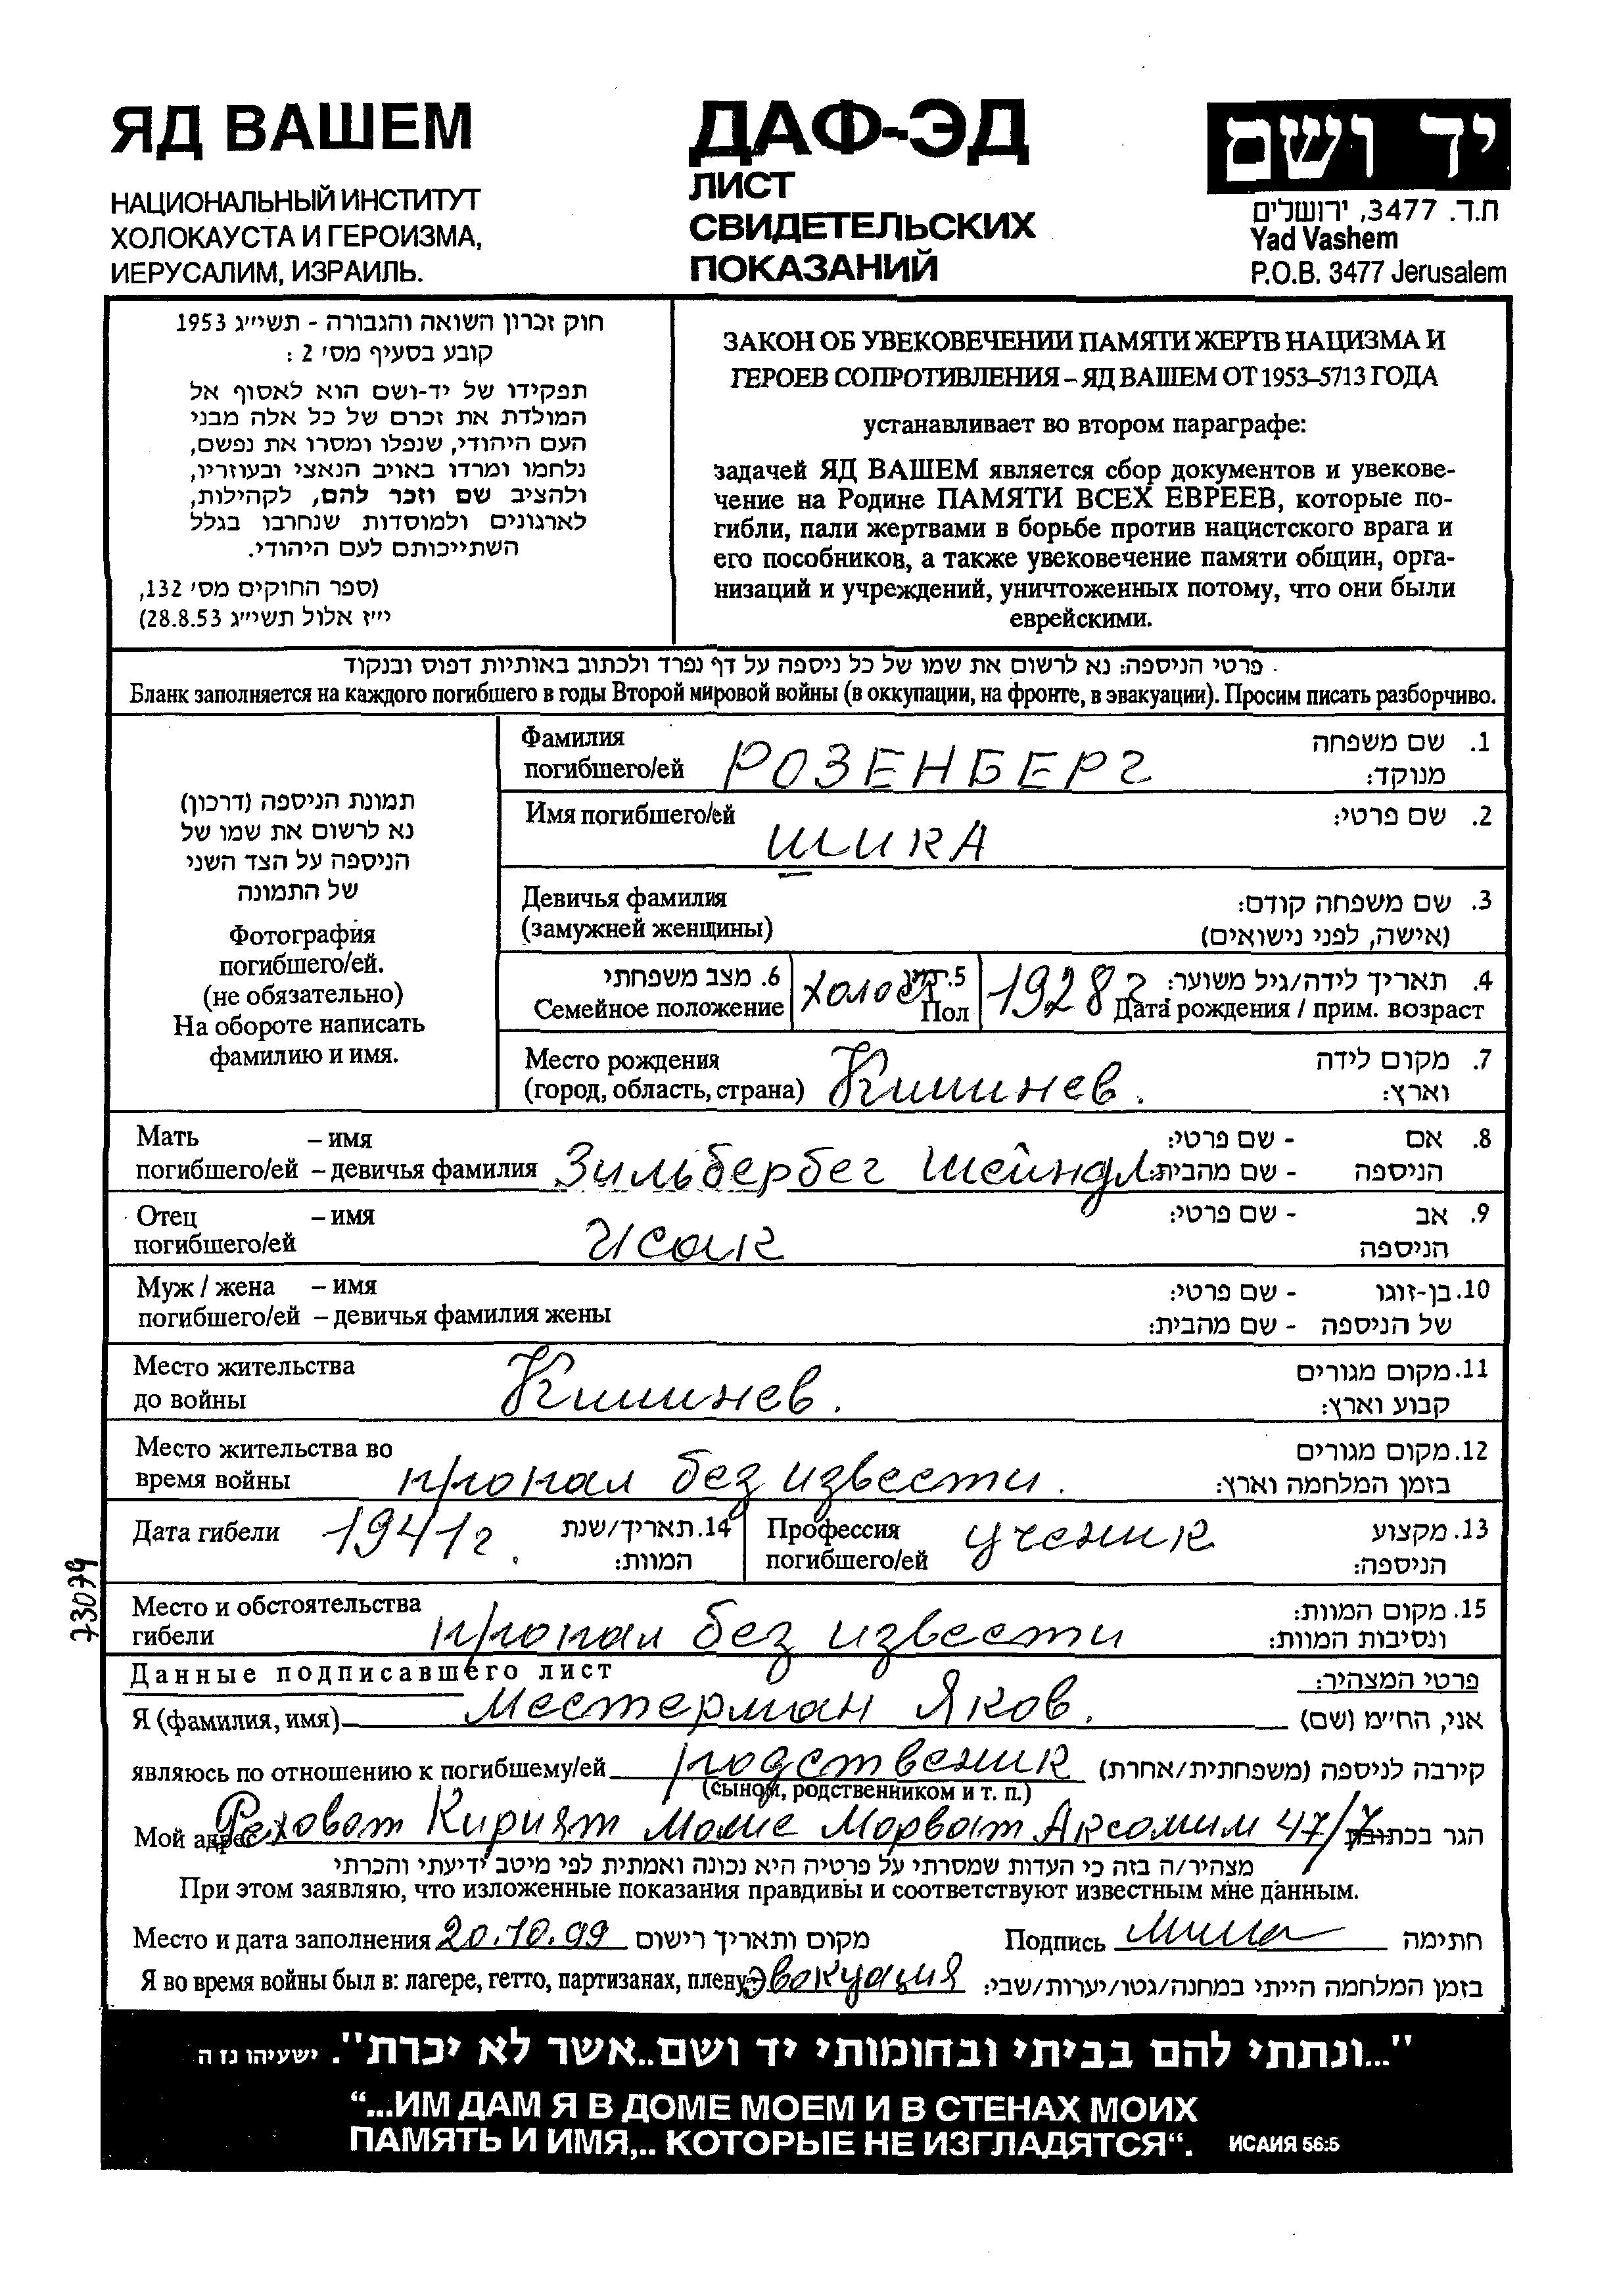 ЯД ВАШЕМ
НАЦИОНАЛЬНЫЙ ИНСТИТУТ
ХОЛОКАУСТА И ГЕРОИЗМА,
ИЕРУСАЛИМ, ИЗРАИЛЬ.
ДАФ-ЭД
ЛИСТ
СВИДЕТЕЛЬСКИХ
ПОКАЗАНИЙ
יד ושם
ת.ד. 3477, ירושלים
Yad Vashem
P.O.B. 3477 Jerusalem
חוק זכרון השואה והגבורה - תשי״ג 1953
קובע בסעיף מס׳ 2 :
תפקידו של יד-ושם הוא לאסוף אל
המולדת את זכרם של כל אלה מבני
העם היהודי, שנפלו ומסרו את נפשם,
נלחמו ומרדו באויב הנאצי ובעוזריו,
ולהציב שם וזכר להם, לקהילות,
לארגונים ולמוסדות שנחרבו בגלל
השתייכותם לעם היהודי.
(ספר החוקים מס׳ 132,
י״ז אלול תשי״ג 28.8.53)
ЗАКОН ОБ УВЕКОВЕЧЕНИИ ПАМЯТИ ЖЕРТВ НАЦИЗМА И
ГЕРОЕВ СОПРОТИВЛЕНИЯ – ЯД ВАШЕМ ОТ 1953–5713 ГОДА
устанавливает во втором параграфе:
задачей ЯД ВАШЕМ является сбор документов и увекове-
чение на Родине ПАМЯТИ ВСЕХ ЕВРЕЕВ, которые по-
гибли, пали жертвами в борьбе против нацистского врага и
его пособников, а также увековечение памяти общин, орга-
низаций и учреждений, уничтоженных потому, что они были
еврейскими.
פרטי הניספה: נא לרשום את שמו של כל ניספה על דף נפרד ולכתוב באותיות דפוס ובנקוד
Бланк заполняется на каждого погибшего в годы Второй мировой войны (в оккупации, на фронте, в эвакуации). Просим писать разборчиво.
תמונת הניספה (דרכון)
נא לרשום את שמו של
הניספה על הצד השני
של התמונה
Фотография
погибшего/ей.
(не обязательно)
На обороте написать
фамилию и имя.
Фамилия
погибшего/ей РОЗЕНБЕРГ
1. שם משפחה
מנוקד:
Имя погибшего/ей ШИКА
2. שם פרטי:
Девичья фамилия
(замужней женщины)
3. שם משפחה קודם:
(אישה, לפני נישואים)
6. מצב משפחתי
Семейное положение
холост
5. מין
Пол
1928 г
4. תאריך לידה/גיל משוער:
Дата рождения / прим. возраст
Место рождения
(город, область, страна) Кишинев.
7. מקום לידה
וארץ:
Мать – имя
погибшего/ей – девичья фамилия Зильбербег Шейндл
8. אם - שם פרטי:
הניספה - שם מהבית:
Отец – имя
погибшего/ей Исаак
9. אב - שם פרטי:
הניספה
Муж / жена – имя
погибшего/ей – девичья фамилия жены
10. בן-זוגו - שם פרטי:
של הניספה - שם מהבית:
Место жительства
до войны Кишинев.
11. מקום מגורים
קבוע וארץ:
Место жительства во
время войны пропал без извести.
12. מקום מגורים
בזמן המלחמה וארץ:
Дата гибели 1941 г.
14. תאריך/שנת
המוות:
Профессия
погибшего/ей ученик
13. מקצוע
הניספה:
73079
Место и обстоятельства
гибели пропал без извести
15. מקום המוות:
ונסיבות המוות:
Данные подписавшего лист
פרטי המצהיר:
Я (фамилия, имя) Местерман Яков. אני, הח״מ (שם)
являюсь по отношению к погибшему/ей родственик קירבה לניספה (משפחתית/אחרת)
(сыном, родственником и т. п.)
Мой адрес Реховот Кирият Моше Морват Аксомим 47/7 הגר בכתובת
מצהיר/ה בזה כי העדות שמסרתי על פרטיה היא נכונה ואמתית לפי מיטב ידיעתי והכרתי
При этом заявляю, что изложенные показания правдивы и соответствуют известным мне данным.
Место и дата заполнения 20.10.99 מקום ותאריך רישום Подпись חתימה
Я во время войны был в: лагере, гетто, партизанах, плену эвокуация בזמן המלחמה הייתי במחנה/גטו/יערות/שבי:
"...ונתתי להם בביתי ובחומותי יד ושם..אשר לא יכרת". ישעיהו נז ה
“...ИМ ДАМ Я В ДОМЕ МОЕМ И В СТЕНАХ МОИХ
ПАМЯТЬ И ИМЯ,.. КОТОРЫЕ НЕ ИЗГЛАДЯТСЯ“. ИСАИЯ 56:5